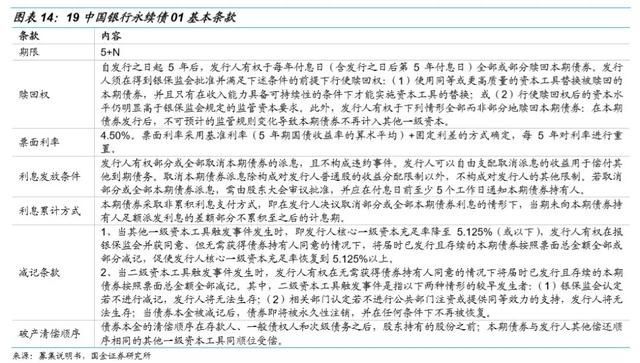 图表 14：19 中国银行永续债 01 基本条款
条款 内容
期限 5+N
赎回权 自发行之日起 5 年后，发行人有权于每年付息日（含发行之日后第 5 年付息日）全部或部分赎回本期债券。发行
人须在得到银保监会批准并满足下述条件的前提下行使赎回权：（1）使用同等或更高质量的资本工具替换被赎回的
本期债券，并且只有在收入能力具备可持续性的条件下才能实施资本工具的替换；或（2）行使赎回权后的资本水
平仍明显高于银保监会规定的监管资本要求。此外，发行人有权于下列情形全部而非部分地赎回本期债券：在本期
债券发行后，不可预计的监管规则变化导致本期债券不再计入其他一级资本。
票面利率 4.50%。票面利率采用基准利率（5 年期国债收益率的算术平均）+固定利差的方式确定，每 5 年对利率进行重
置。
利息发放条件 发行人有权部分或全部取消本期债券的派息，且不构成违约事件。发行人可以自由支配取消派息的收益用于偿付其
他到期债务。取消本期债券派息除构成对发行人普通股的收益分配限制以外，不构成对发行人的其他限制。若取消
部分或全部本期债券派息，需由股东大会审议批准，并应在付息日前至少 5 个工作日通知本期债券持有人。
利息累计方式 本期债券采取非累积利息支付方式，即在发行人决议取消部分或全部本期债券利息的情形下，当期未向本期债券持
有人足额派发利息的差额部分不累积至之后的计息期。
减记条款 1、当其他一级资本工具触发事件发生时，即发行人核心一级资本充足率降至 5.125%（或以下），发行人有权在报
银保监会并获同意、但无需获得债券持有人同意的情况下，将届时已发行且存续的本期债券按照票面总金额全部或
部分减记，促使发行人核心一级资本充足率恢复到 5.125%以上。
2、当二级资本工具触发事件发生时，发行人有权在无需获得债券持有人同意的情况下将届时已发行且存续的本期债
券按照票面总金额全部减记。其中，二级资本工具触发事件是指以下两种情形的较早发生者：（1）银保监会认定
若不进行减记，发行人将无法生存；（2）相关部门认定若不进行公共部门注资或提供同等效力的支持，发行人将无
法生存；当债券本金被减记后，债券即将被永久性注销，并在任何条件下不再被恢复。
破产清偿顺序 债券本金的清偿顺序在存款人、一般债权人和次级债务之后，股东持有的股份之前；本期债券与发行人其他偿还顺
序相同的其他一级资本工具同顺位受偿。
来源：募集说明书，国金证券研究所